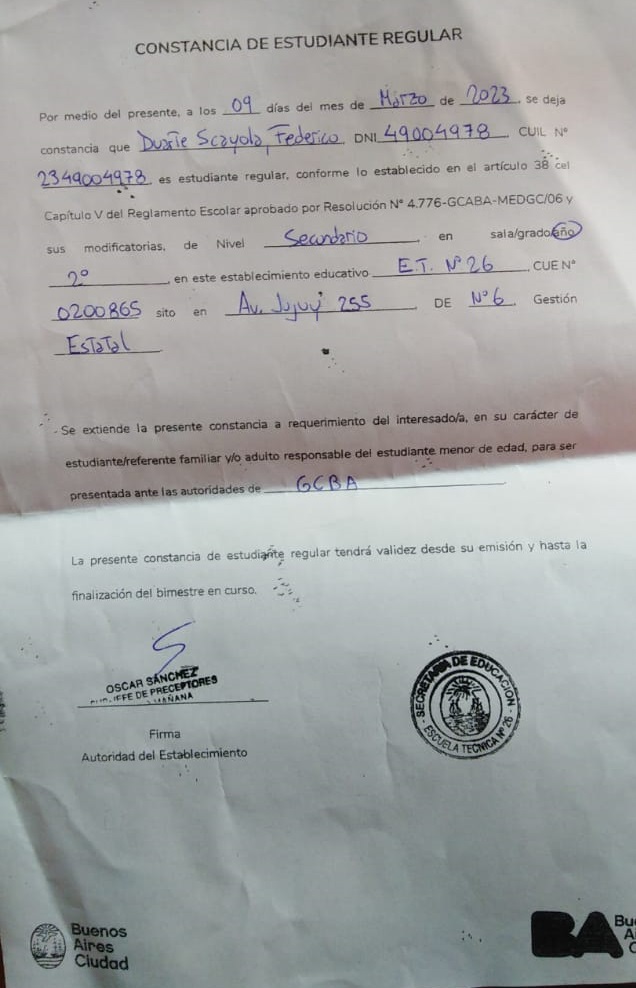 CONSTANCIA DE ESTUDIANTE REGULAR
Por medio del presente, a los 09 días del mes de Marzo de 2023, se deja
constancia que Duarte Scayola, Federico DNI 49004978, CUIL N°
2349004978 es estudiante regular, conforme lo establecido en el artículo 38 del
Capítulo V del Reglamento Escolar aprobado por Resolución N° 4.776-GCABA-MEDGC/06 y
sus modificatorias, de Nivel Secundario, en sala/grado/año
2°, en este establecimiento educativo E.T. N°26, CUE N°
0200865 sito en Av. Jujuy 255, DE N°6. Gestión
Estatal.
Se extiende la presente constancia a requerimiento del interesado/a, en su carácter de
estudiante/referente familiar y/o adulto responsable del estudiante menor de edad, para ser
presentada ante las autoridades de GCBA.
La presente constancia de estudiante regular tendrá validez desde su emisión y hasta la
finalización del bimestre en curso.
OSCAR SÁNCHEZ
JEFE DE PRECEPTORES
MAÑANA
Firma
Autoridad del Establecimiento
SECRETARIA DE EDUCACION
ESCUELA TECNICA N° 26
Buenos
Aires
Ciudad
BA
Bu
A
C